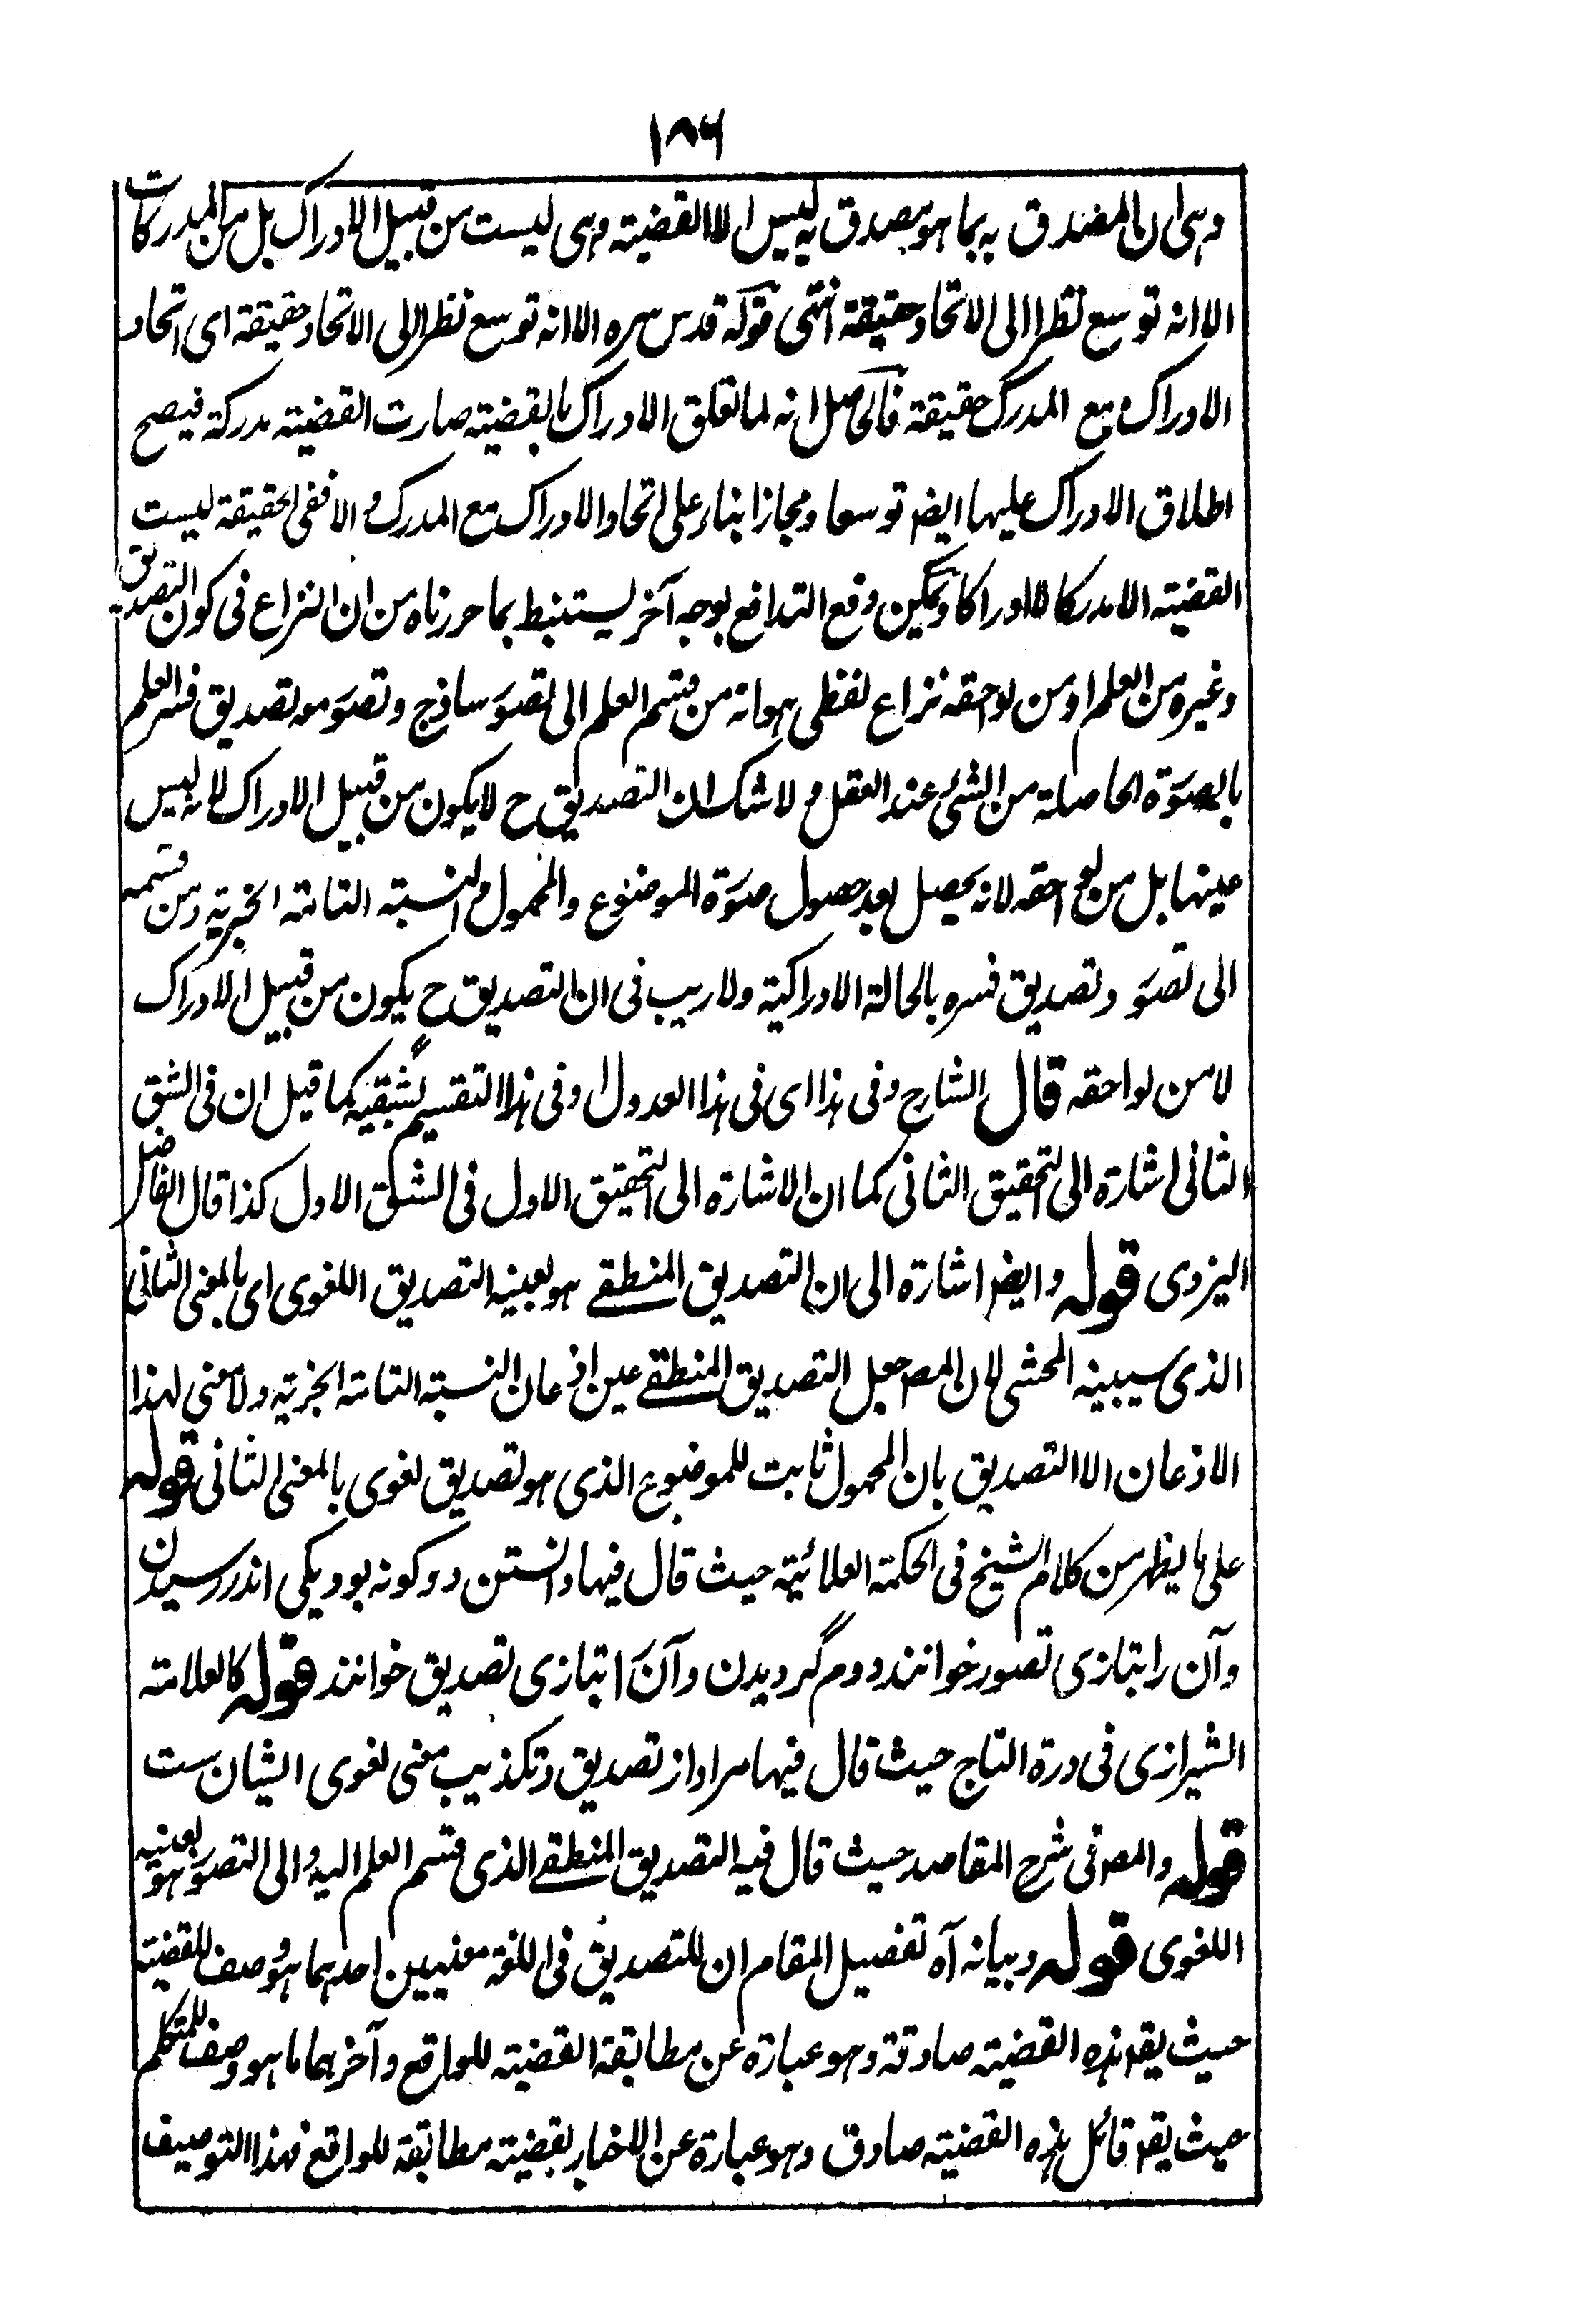 ١٨٦
وهى ان المصدق به بما هو مصدق به ليس الا القضية وهى ليست من قبيل الادراك بل من المدركات
الا انه توسع نظرا الى الاتحاد حقيقة انتهى قوله قدس سره الا انه توسع نظرا الى الاتحاد حقيقة اى اتحاد
الادراك مع المدرك حقيقة فالحاصل انه لما تعلق الادراك بالقضية صارت القضية مدركة فيصح
اطلاق الادراك عليها ايضا توسعا ومجازا بناء على اتحاد الادراك مع المدرك والا ففى الحقيقة ليست
القضية الا مدركا لا ادراكا ويمكن دفع التدافع بوجه آخر يستنبط بما حررناه من ان النزاع فى كون التصديق
وغيره من العلم او من لواحقه نزاع لفظى هو انه من قسم العلم الى تصور ساذج وتصور معه تصديق فسر العلم
بالصورة الحاصلة من الشئ عند العقل ولا شك ان التصديق ح لا يكون من قبيل الادراك لانه ليس
عينها بل من لواحقه لانه يحصل بعد حصول صورة الموضوع والمحمول والنسبة التامة الخبرية ومن قسمه
الى تصور وتصديق فسره بالحالة الادراكية ولا ريب فى ان التصديق ح يكون من قبيل الادراك
لا من لواحقه قال الشارح وفى هذا اى فى هذا العدول او فى هذا التقسيم بشقيه كما قيل ان فى الشق
الثانى اشارة الى التحقيق الثانى كما ان الاشارة الى التحقيق الاول فى الشق الاول كذا قال الفاضل
اليزدى قوله وايضا اشارة الى ان التصديق المنطقى هو بعينه التصديق اللغوى اى بالمعنى الثانى
الذى سيبينه المحشى لان المص جعل التصديق المنطقى عين اذعان النسبة التامة الخبرية ولا معنى لهذا
الاذعان الا التصديق بان المحمول ثابت للموضوع الذى هو تصديق لغوى بالمعنى الثانى قوله
على ما يظهر من كلام الشيخ فى الحكمة العلائية حيث قال فيها دانستن دو گونه بود يكى اندر رسيدن
وآن را بتازى تصور خوانند دوم گرويدن وآن را بتازى تصديق خوانند قوله كالعلامة
الشيرازى فى درة التاج حيث قال فيها مراد از تصديق وتكذيب معنى لغوى ايشان ست
قوله والمص فى شرح المقاصد حيث قال فيه التصديق المنطقى الذى قسم العلم اليه والى التصور هو بعينه
اللغوى قوله وبيانه آه تفصيل المقام ان للتصديق فى اللغة معنيين احدهما هو وصف للقضية
حيث يقه هذه القضية صادقة وهو عبارة عن مطابقة القضية للواقع وآخرهما ما هو وصف للمتكلم
حيث يقه قائل هذه القضية صادق وهو عبارة عن الاخبار بقضية مطابقة للواقع فهذا التوصيف